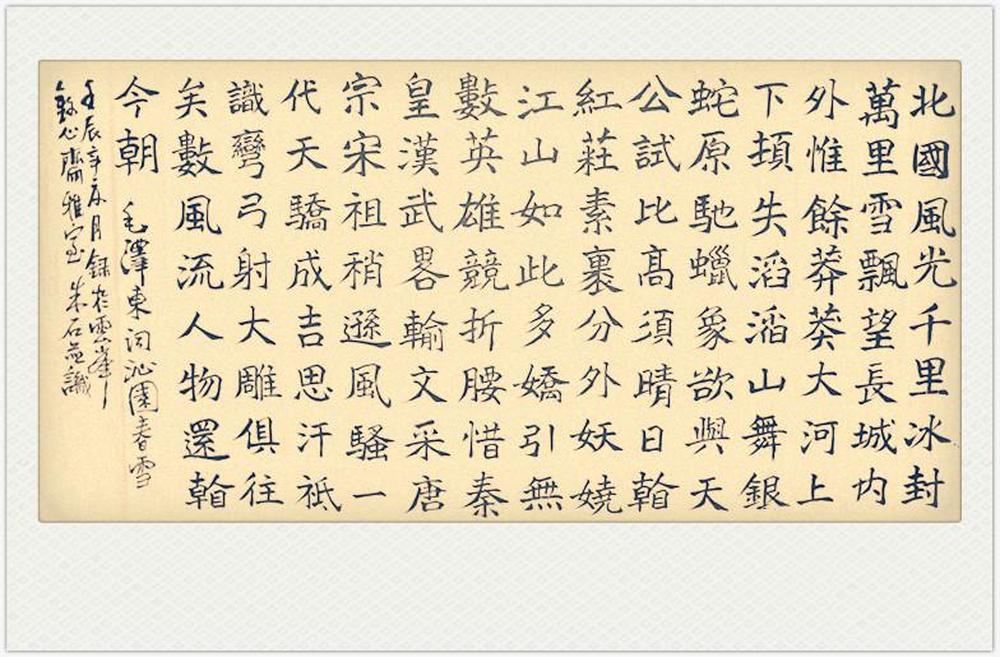 北國風光千里冰封
萬里雪飄望長城内
外惟餘莽莽大河上
下頓失滔滔山舞銀
蛇原馳蠟象欲與天
公試比髙須晴日看
紅莊素裹分外妖嬈
江山如此多嬌引無
數英雄競折腰惜秦
皇漢武畧輸文采唐
宗宋祖稍遜風騷一
代天驕成吉思汗祗
識彎弓射大雕俱往
矣數風流人物還看
今朝 毛澤東詞沁園春雪
壬辰辛亥月錄於雲峯
心齋雅室 朱石並識